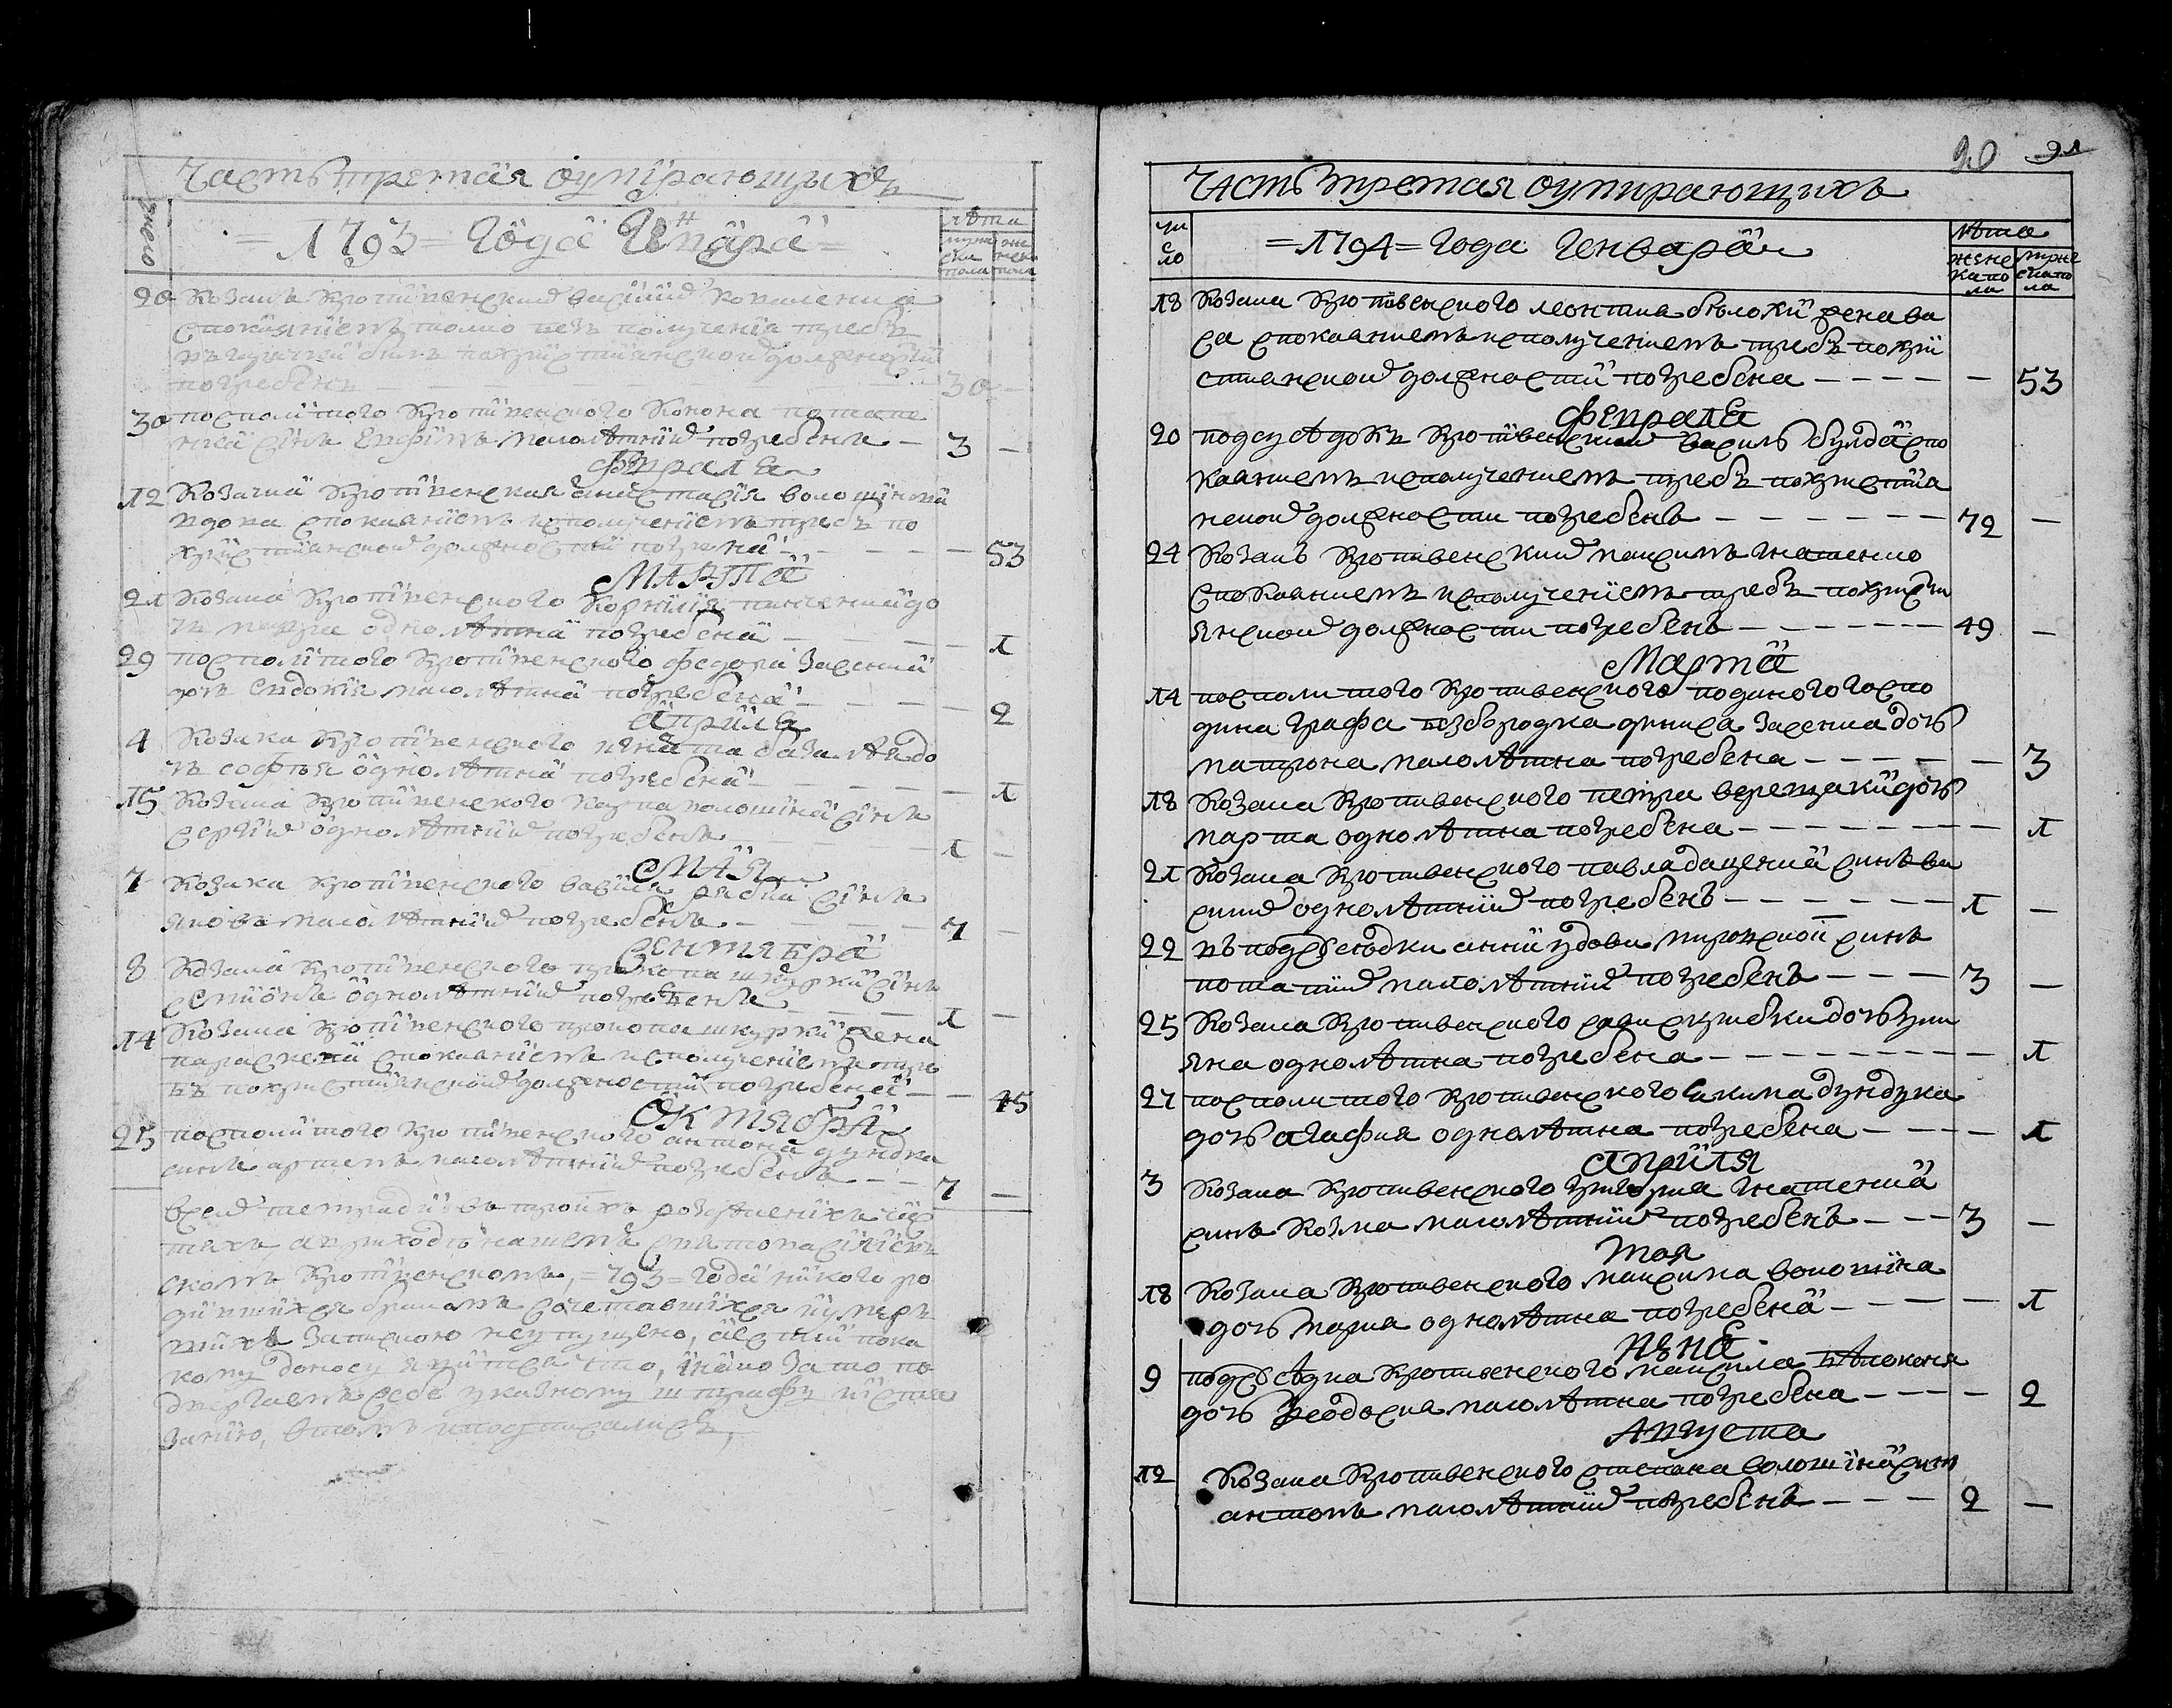 Часть третая оумѣрающихъ
число
=1793= Года Генъваря
лѣта
муже ска пола
жен ска пола
20 Козакъ Кропивенский васiлий
споконяниемъ толко безъ полученiя требъ
похриcтиянской должности
погребенъ — — — 30 —
30 посполитого Кропивенского Конона
синъ малолѣтний погребенъ — 3 —
Февраля
12 Козачка Кропивенская анастасiя волошинова
вдова спокаяниемъ исполучениемъ требъ по
християнской должности погребена — — 53
Марта
21 Козака Кропивенского Корнилiя до
чь однолѣтна погребена — — 1
29 посполитого Кропивенского федора Засенка
дочь Евдокия малолѣтна погребена — — 2
Априля
4 Козака Кропивенского игната до
чь софъя однолѣтна погребена — — 1
15 Козака Кропивенского Карпа волошина синъ
сергий однолѣтний погребенъ — 1 —
Мая
7 Козака Кропивенского васiля рябка синъ
яковъ малолѣтний погребенъ — 7 —
Сентября
8 Козака Кропивенского прокопа шкурки синъ
семионъ однолѣтний погребенъ — 1 —
14 Козака Кропивенского прокопа шкурки жена
параскева спокаяниемъ исполучениемъ тре
бъ похристиянской должности погребена — — 45
Октября
25 посполитого Кропивенского антона дундука
синъ артемъ малолѣтний погребенъ — 7 —
всей тетради въ троихъ
тяхъ априходѣ нашемъ святоваси
скомъ Кропивенскомъ, =793= года никого ро
дившихся бракомъ сочетавшихся иумер
шихъ Запискою неупущено, аестли пока
кому доносу явится что, Инако Зато по
двергаемъ себе указному штрафу
занию, втомъ иподписалисъ,
20 91
Часть третая оумирающихъ
чи с ло
=1794= Года Генваря
лѣта
женс ка по ла
муже ска по ла
18 Козака Кропивенского леонтия бѣлохи жена ва
са спокаяниемъ исполучениемъ требъ похри
стиянской должности погребена — — — — 53
Февраля
20 подсусѣдокъ Кропивенский василь булда спо
каяниемъ исполучениемъ требъ похристия
нской должности погребенъ — — — — 72 —
24 Козакъ Кропивенский максимъ Гнатенко
спокаяниемъ исполучениемъ требъ похристи
янской должности погребенъ — — — — 49 —
Марта
14 посполитого Кропивенского поданого госпо
дина Графа безбородка дениса Засенка дочь
матрона малолѣтна погребена — — — — 3
18 Козака Кропивенского петра верещаки дочь
марта однолѣтна погребена — — — — 1
21 Козака Кропивенского павла даценка синъ ва
силий однолѣтний погребенъ — — — — 1 —
22 подсусѣдки анни удови синъ
потапий малолѣтний погребенъ — — — 3 —
25 Козака Кропивенского сави скрибки дочь ули
яна однолѣтна погребена — — — — 1
27 посполитого Кропивенского Екима дундука
дочь агафия однолѣтна погребена — — — — 1
Априля
3 Козака Кропивенского григория Гнатенка
синъ Козма малолѣтний погребенъ — — — 3 —
Мая
18 Козака Кропивенского максима волошина
дочь мария однолѣтна погребена — — — — 1
Июня
9 подсусѣдка Кропивенского максима бѣлоконя
дочь феодосия малолѣтна погребена — — — — 2
Августа
12 Козака Кропивенского стефана волошина синъ
антонъ малолѣтний погребенъ — — — — 2 —